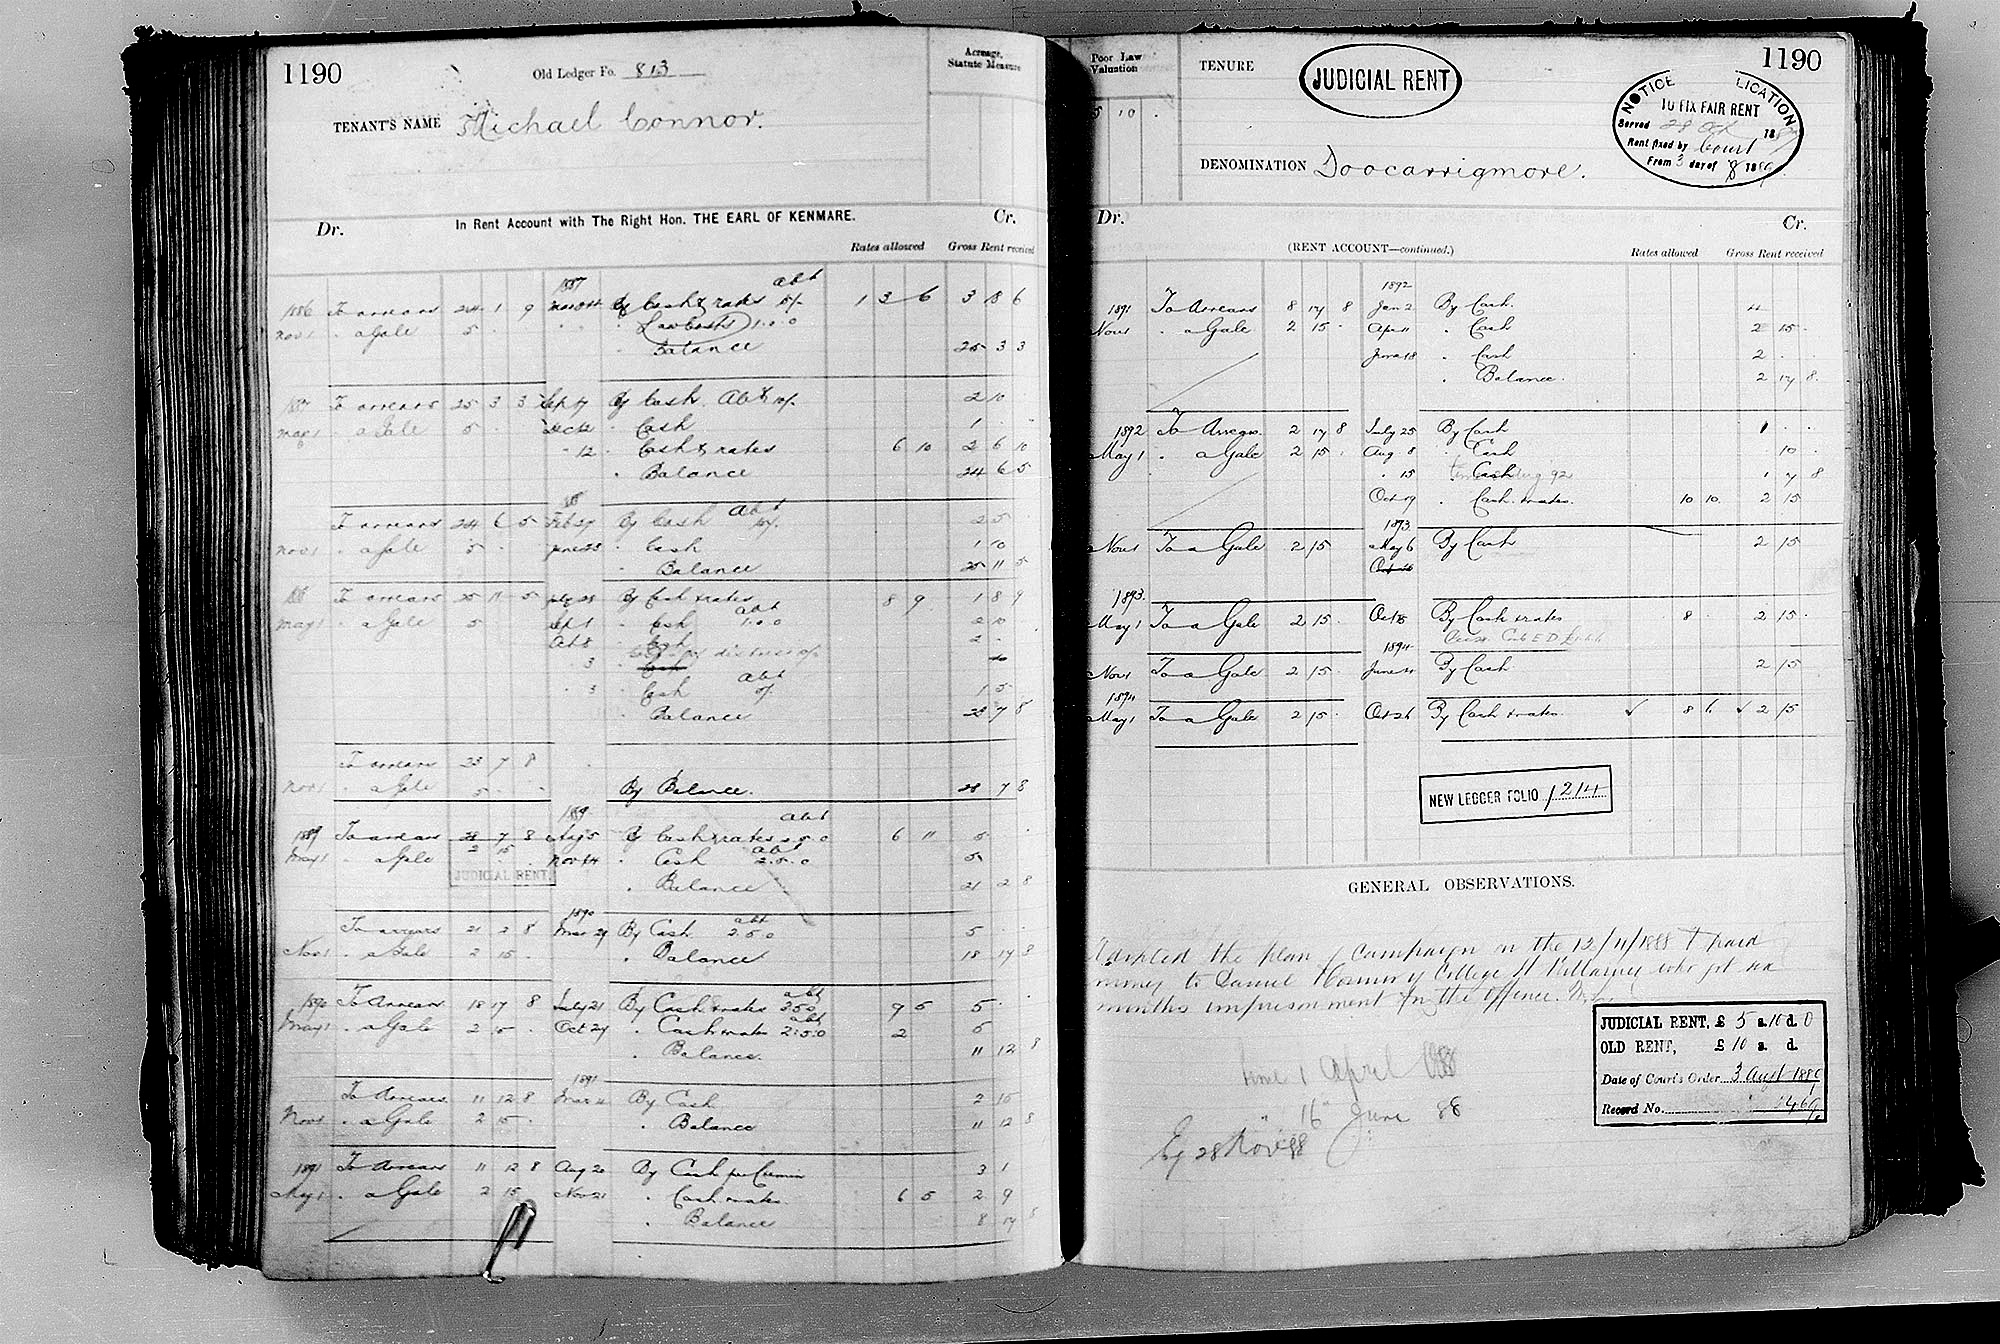 1190
Old Ledger Fo. 813
Acreage, Statute Measure
TENANT'S NAME Michael Connor.
Dr. In Rent Account with The Right Hon. THE EARL OF KENMARE. Cr.
Rates allowed Gross Rent received
1887 abt
1886 To arrears 24 1 9 By Cash & rates 1 3 6 3 18 6
Nov 1 " a Gale 5 " Law Costs 1.0.0
" Balance 25 3 3
1887 To arrears 25 3 3 Sep 17 By Cash Abt 2 10
May 1 " a Gale 5 " Cash 1
" 12 Cash & rates 6 10 2 6 10
" Balance 24 6 5
Abt
To arrears 24 6 5 Feb 27 By Cash 2 5
Nov 1 " a Gale 5 June 23 " Cash 1 10
" Balance 25 11 5
To arrears 25 11 5 By Cash & rates 8 9 1 8 9
abt
May 1 " a Gale 5 Sept 1 " Cash 1.0.0 2 10
2
" 3 Cash
abt
" 3 " Cash 1 5
" Balance 23 7 8
To arrears 23 7 8
Nov 1 " a Gale 5 By Balance. 28 7 8
1889 abt
1889 To arrears 28 7 8 Aug 5 By Cash & rates 2.5.0 6 11 5
abt
May 1 " a Gale 2 15 Nov 14 " Cash 2.5.0 5
JUDICIAL RENT.
" Balance 21 2 8
1890 abt
To arrears 21 2 8 Mar 29 By Cash 2.5.0 5
Nov 1 " a Gale 2 15 " Balance 18 17 8
abt
1890 To Arrears 18 17 8 July 21 By Cash & rates 9 5 5
abt
May 1 " a Gale 2 15 Oct 27 " Cash & rates 2.5.0 2 5
" Balance. 11 12 8
1891
To Arrears 11 12 8 Mar 11 By Cash 2 15
Nov 1 " a Gale 2 15 " Balance 11 12 8
1891 To Arrears 11 12 8 Aug 20 By Cash per 3 1
May 1 " a Gale 2 15 Nov 21 " Cash & rates. 6 5 2 9
" Balance 8 17 8
Poor Law Valuation
5 10
TENURE
JUDICIAL RENT
1190
NOTICE LICATION
TO FIX FAIR RENT
Served 28 Oct 188
Rent fixed by Court
From 3 day of 8 1889
DENOMINATION Doocarrigmore.
Dr. Cr.
(RENT ACCOUNT—continued.)
Rates allowed Gross Rent received
1892
1891 To Arrears 8 17 8 Jan 2 By Cash.
Nov 1 " a Gale 2 15 Apr 11 " Cash 2 15
June 18 " Cash 2
" Balance. 2 17 8
1892 To Arrears. 2 17 8 July 25 By Cash 1
May 1 " a Gale 2 15 Aug 8 " Cash 10
" 15 Cash 1 7 8
Oct 19 " Cash & rates. 10 10 2 15
1893
Nov 1 To a Gale 2 15 May 6 By Cash 2 15
1893
May 1 To a Gale 2 15 Oct 15 By Cash & rates 8 2 15
1894
Nov 1 To a Gale 2 15 June 11 By Cash 2 15
1894
May 1 To a Gale 2 15 Oct 26 By Cash & rates ✓ 8 6 ✓ 2 15
NEW LEDGER FOLIO 1214
GENERAL OBSERVATIONS.
Adopted the plan of campaign on the 12/11/1888 & paid
money to Daniel Connor of College St Killarney who got six
months imprisonment for the offence.
JUDICIAL RENT, £ 5 s. 10 d. 0
OLD RENT, £ 10 s. d.
Date of Court's Order 3 Augt 1889
Record No. 3469
time 1 April 1888
" 16 June 88
28 Nov 88